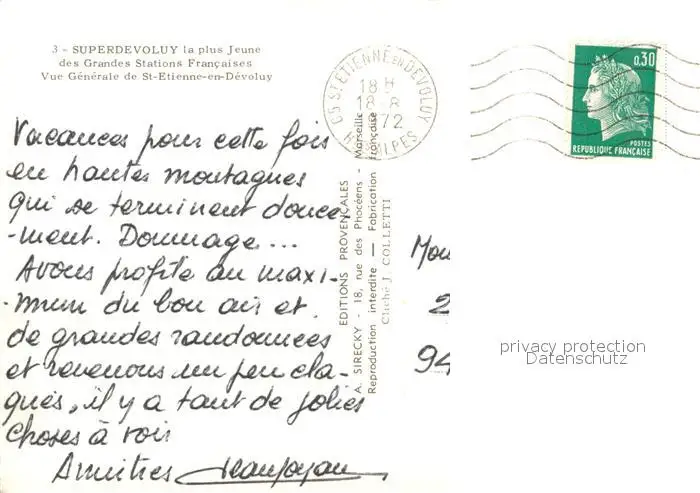 3 - SUPERDEVOLUY la plus Jeune
des Grandes Stations Françaises
Vue Générale de St-Etienne-en-Dévoluy
05 ST ETIENNE EN DEVOLUY
18 H
18-8
1972
HTES ALPES
0,30
POSTES
REPUBLIQUE FRANÇAISE
Vacances pour cette fois
en hautes montagnes
qui se terminent douce
-ment. Dommage...
Avons profité au maxi-
-mum du bon air et
de grandes randonnées
et revenons un peu cla-
qués, il y a tant de jolies
choses à voir
Amitiés
EDITIONS PROVENÇALES
A. SIRECKY - 18, rue des Phocéens - Marseille
Reproduction interdite — Fabrication française
Cliché J. COLLETTI
Mou
2
94
privacy protection
Datenschutz